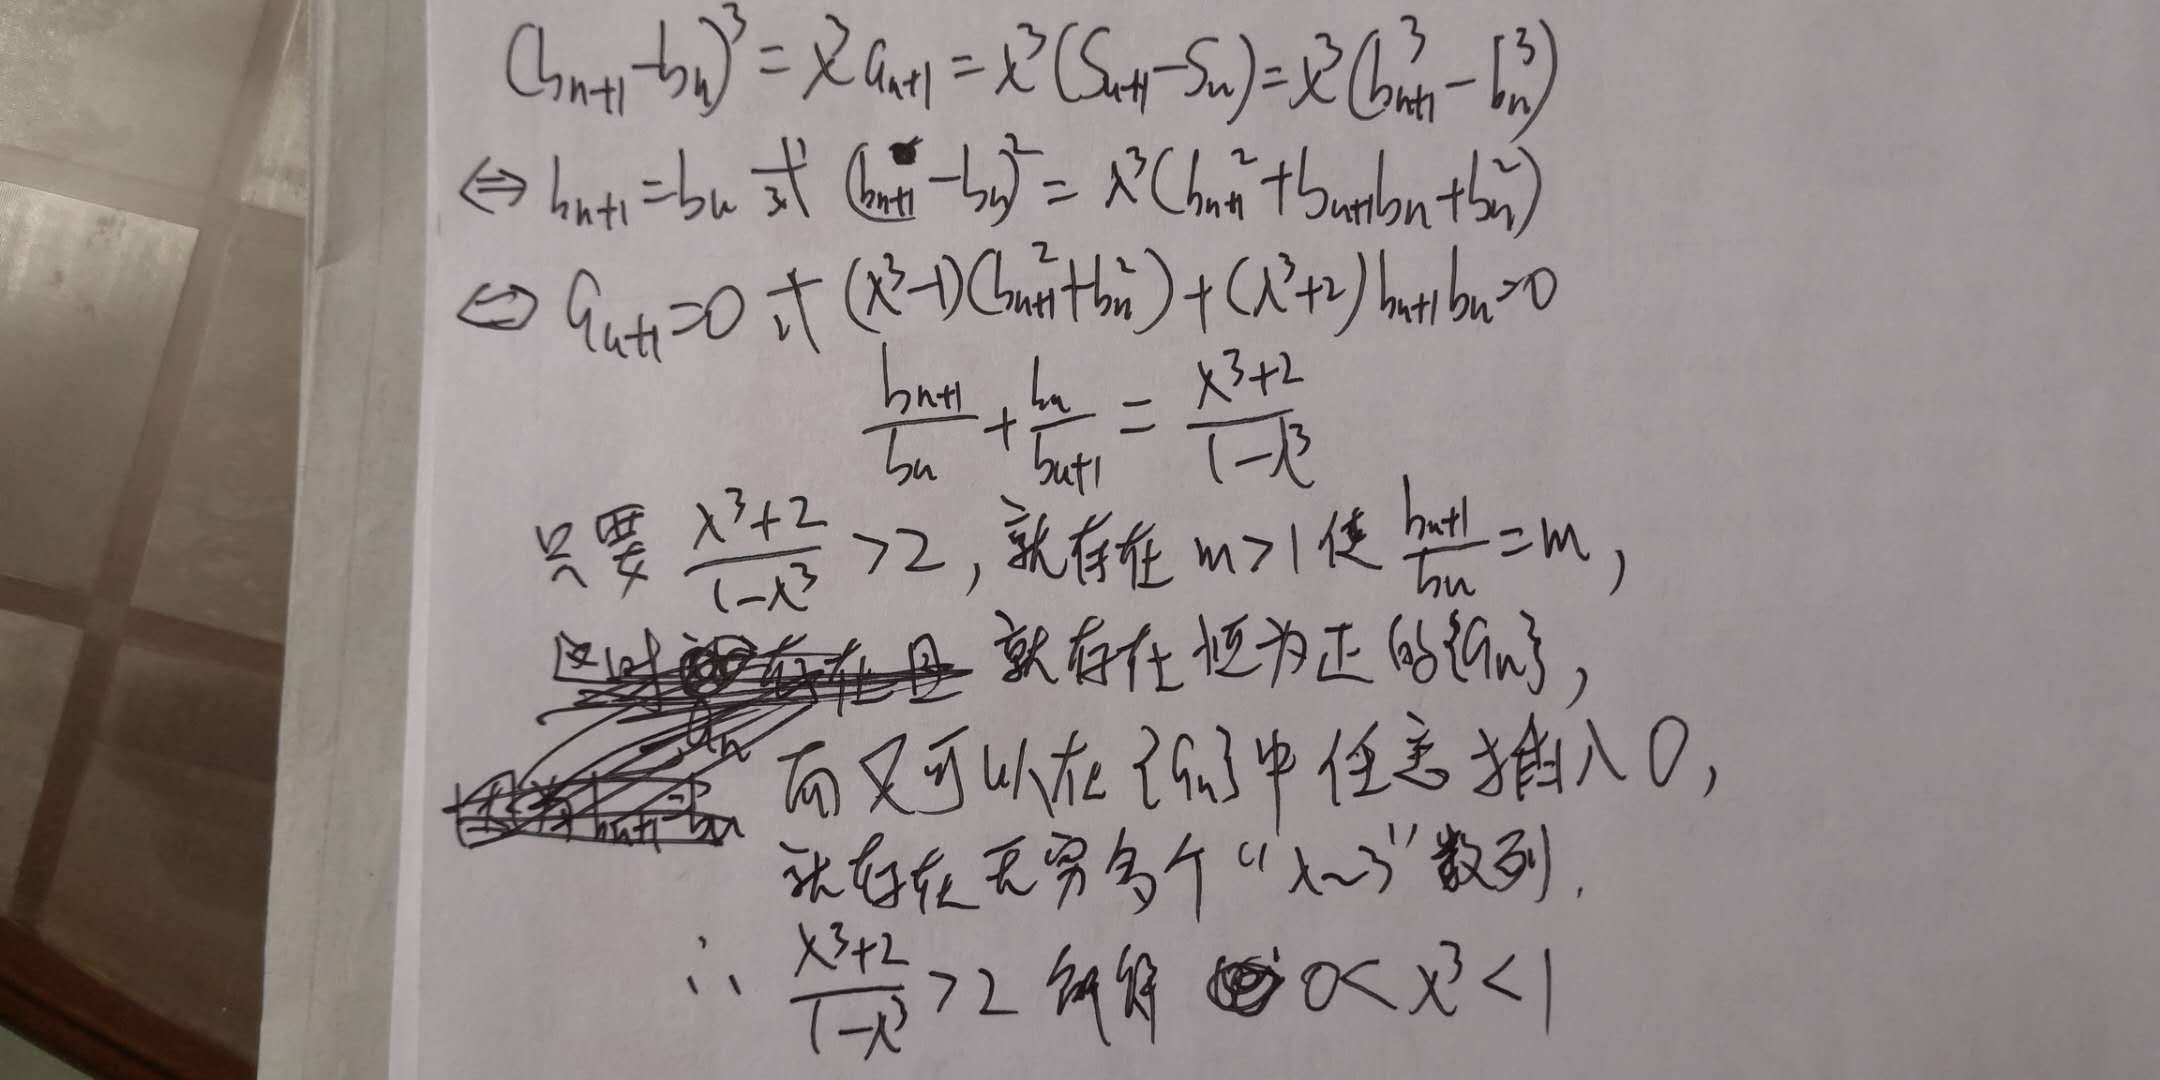 (b_{n+1}-b_n)^3=λ^3a_{n+1}=λ^3(S_{n+1}-S_n)=λ^3(b_{n+1}^3-b_n^3)
⇔ b_{n+1}=b_n 或 (b_{n+1}-b_n)^2=λ^3(b_{n+1}^2+b_{n+1}b_n+b_n^2)
⇔ a_{n+1}=0 或 (λ^3-1)(b_{n+1}^2+b_n^2)+(λ^3+2)b_{n+1}b_n=0
\frac{b_{n+1}}{b_n}+\frac{b_n}{b_{n+1}}=\frac{λ^3+2}{1-λ^3}
只要 \frac{λ^3+2}{1-λ^3}>2, 就存在 m>1 使 \frac{b_{n+1}}{b_n}=m,
就存在恒为正的{a_n},
而又可以在{a_n}中任意插入0,
就存在无穷多个“λ~3”数列.
∴ \frac{λ^3+2}{1-λ^3}>2 解得 0<λ^3<1